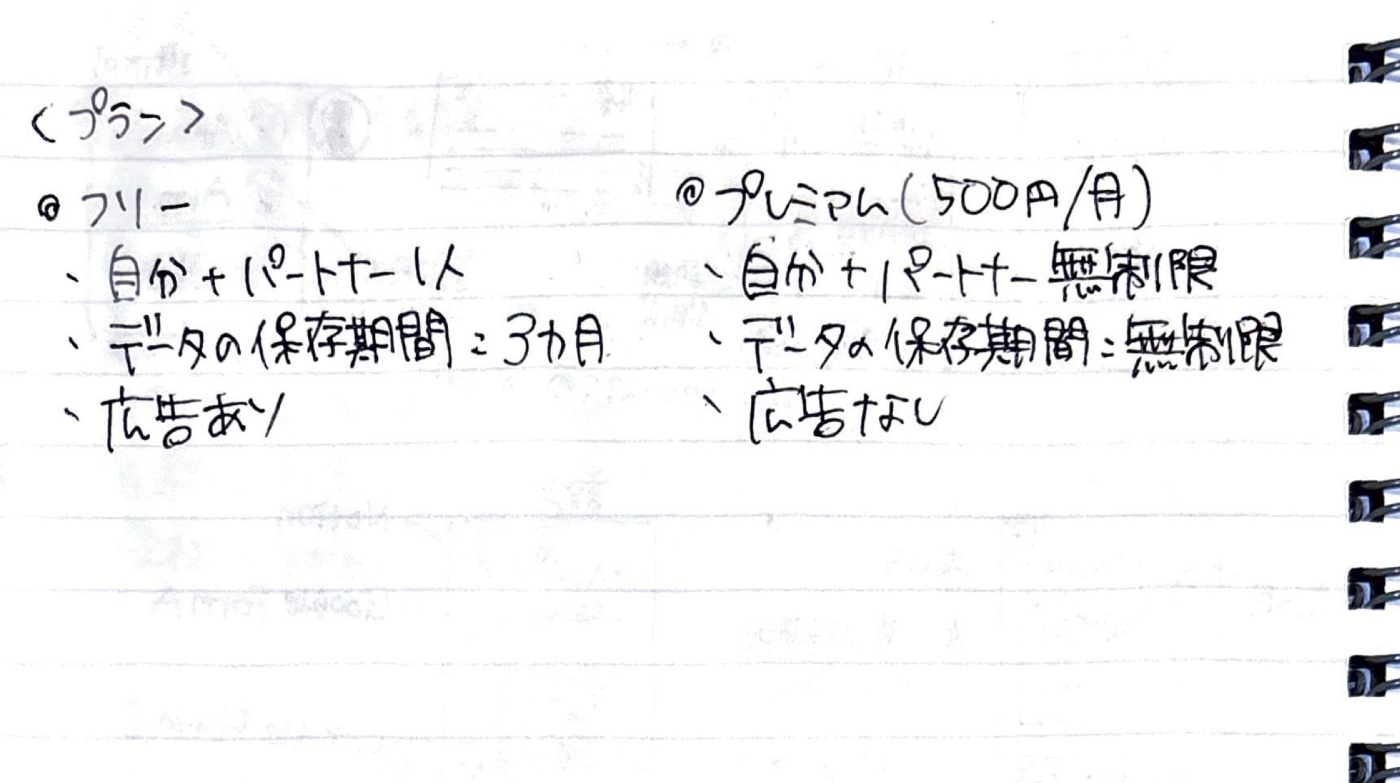 <プラン>
◎ フリー
・自分+パートナー1人
・データの保存期間:3カ月
・広告あり
◎プレミアム(500円/月)
・自分+パートナー無制限
・データの保存期間:無制限
・広告なし